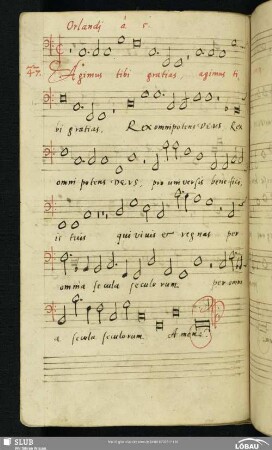 Orlandi á 5.
47.
Agimus tibi gratias, agimus ti
bi gratias, Rex omnipotens DEVS Rex
omnipotens DEVS pro universis beneficiis
is tuis qui vivis et regnas per
omnia secula seculorum. per omni
a secula seculorum. Amen.
SLUB
Wir führen Wissen.
LÖBAU